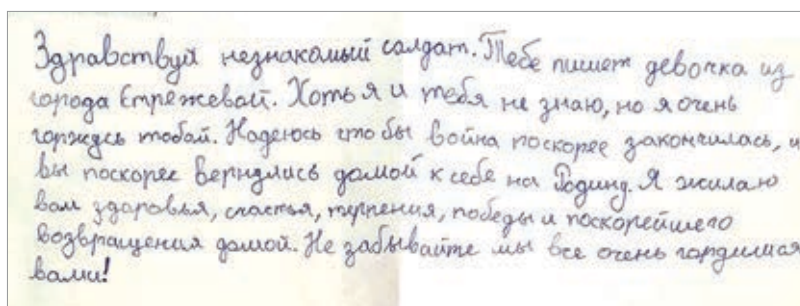 Здравствуй незнакомый солдат. Тебе пишет девочка из
города Стрежевой. Хоть я и тебя не знаю, но я очень
горжусь тобой. Надеюсь что бы война поскорее закончилась, и
вы поскорее вернулись домой к себе на Родину. Я жилаю
вам здаровья, счастья, терпения, победы и поскорейшего
возвращения домой. Не забывайте мы все очень гордимся
вами!